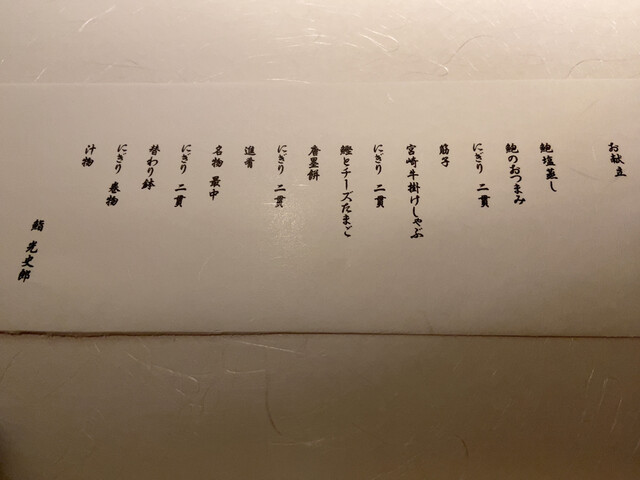 お献立
鮑塩蒸し
鮑のおつまみ
にぎり 二貫
筋子
宮崎牛掛けしゃぶ
にぎり 二貫
鰹とチーズたまご
唐墨餅
にぎり 二貫
進肴
名物 最中
にぎり 二貫
替わり鉢
にぎり 巻物
汁物
鮨 光史郎